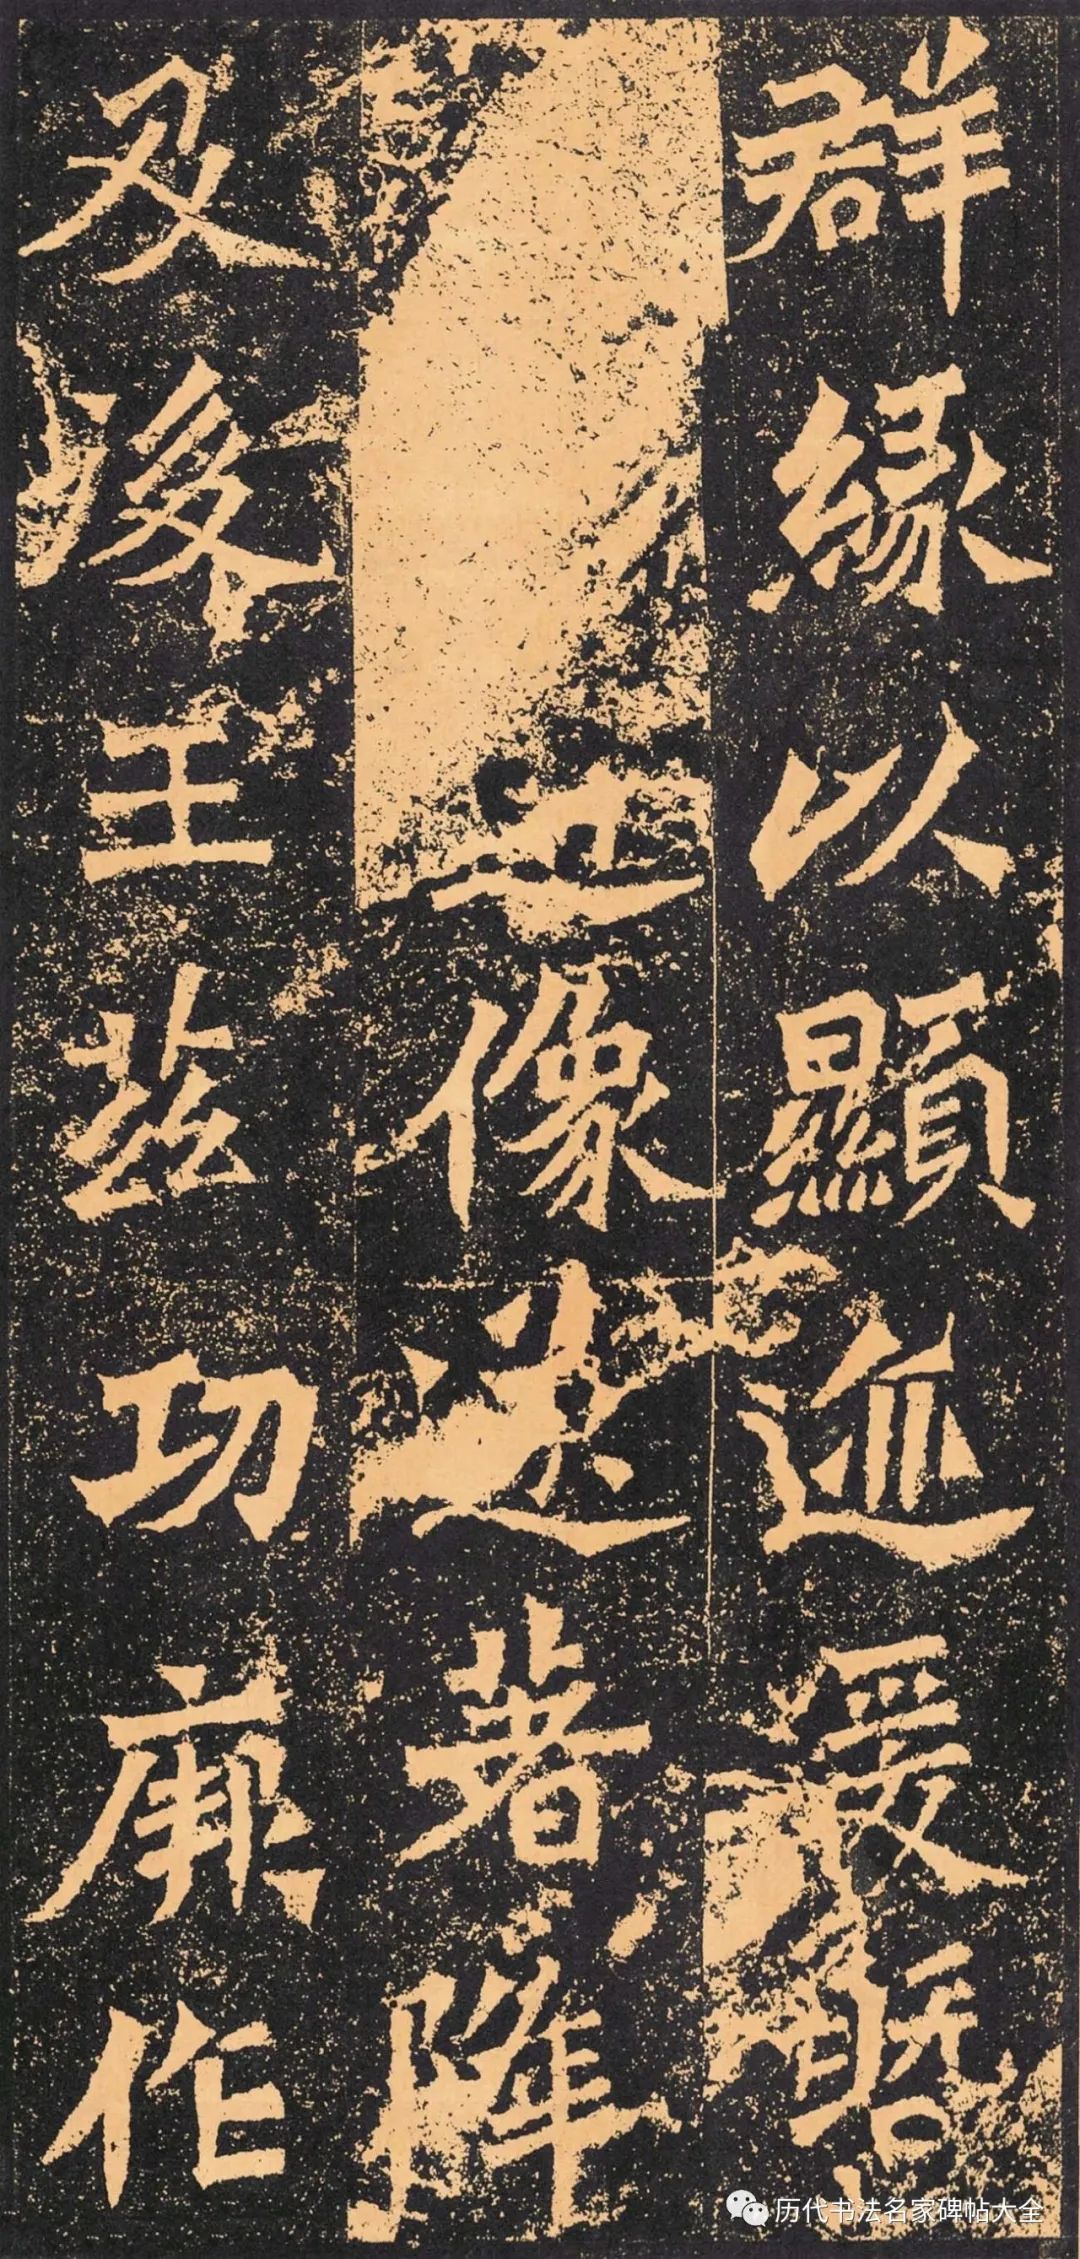 群緣以顯迹爰暨
像遂著降
及後王茲功厥作
历代书法名家碑帖大全